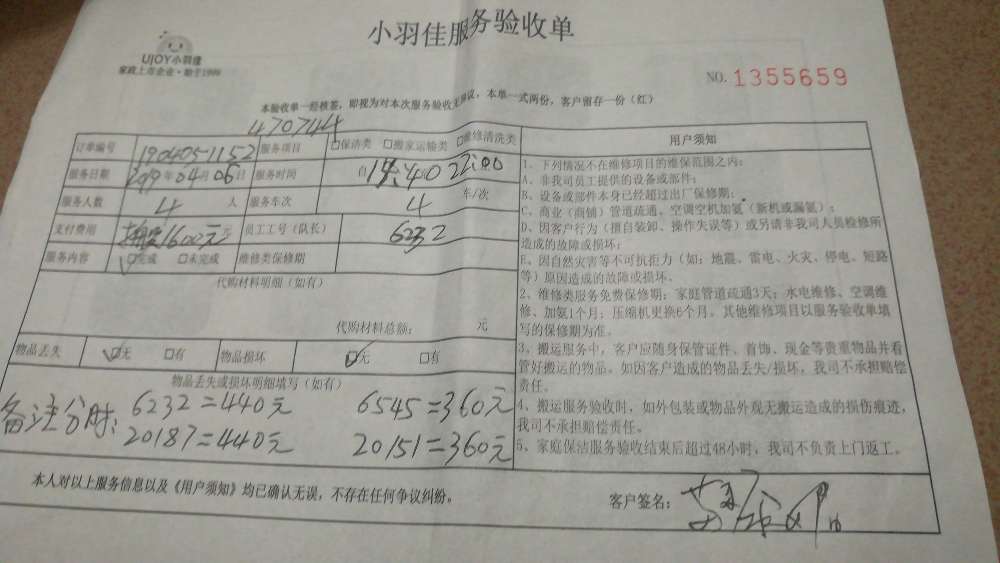 小羽佳服务验收单
UJOY小羽佳
家政上市企业·始于1999
NO. 1355659
本验收单一经核签，即视为对本次服务验收无异议，本单一式两份，客户留存一份（红）
470744
订单编号 1904051152 服务项目 □保洁类 □搬家运输类 □维修清洗类
服务日期 2019年04月06日 服务时间 自
服务人数 4 人 服务车次 4 车/次
支付费用 1600元 员工工号（队长） 6232
服务内容 ☑完成 □未完成 维修类保修期
代购材料明细（如有）
代购材料总额： 元
物品丢失 ☑无 □有 物品损坏 ☑无 □有
物品丢失或损坏明细填写（如有）
备注分时： 6232=440元 6545=360元
20187=440元 20151=360元
用户须知
1、下列情况不在维修项目的维保范围之内：
A、非我司员工提供的设备或部件；
B、设备或部件本身已经超过出厂保修期；
C、商业（商铺）管道疏通、空调空机加氨（新机或漏氨）；
D、因客户行为（擅自装卸、操作失误等）或另请非我司人员检修所
造成的故障或损坏；
E、因自然灾害等不可抗拒力（如：地震、雷电、火灾、停电、短路
等）原因造成的故障或损坏。
2、维修类服务免费保修期：家庭管道疏通3天；水电维修、空调维
修、加氨1个月；压缩机更换6个月。其他维修项目以服务验收单填
写的保修期为准。
3、搬运服务中，客户应随身保管证件、首饰、现金等贵重物品并看
管好搬运的物品。如因客户造成的物品丢失/损坏，我司不承担赔偿
责任。
4、搬运服务验收时，如外包装或物品外观无搬运造成的损伤痕迹，
我司不承担赔偿责任。
5、家庭保洁服务验收结束后超过48小时，我司不负责上门返工。
本人对以上服务信息以及《用户须知》均已确认无误，不存在任何争议纠纷。
客户签名：